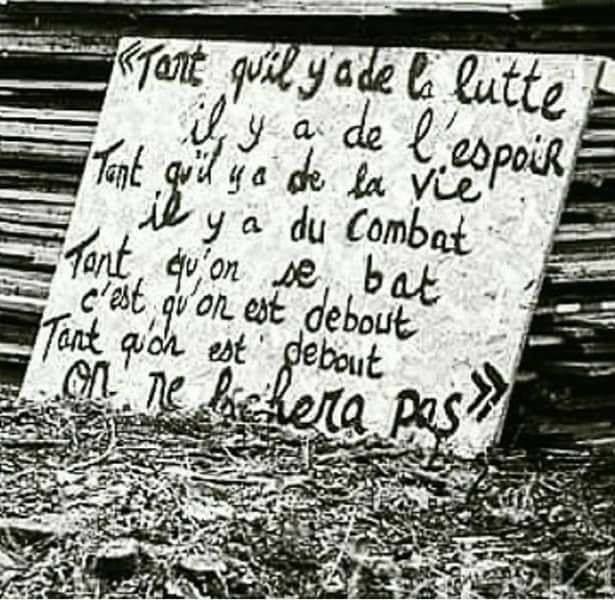 «Tant qu'il y a de la lutte
il y a de l'espoiR
Tant qu'il y a de la vie
il y a du Combat
Tant qu'on se bat
c'est qu'on est debout
Tant qu'on est debout
On ne lâchera pas»